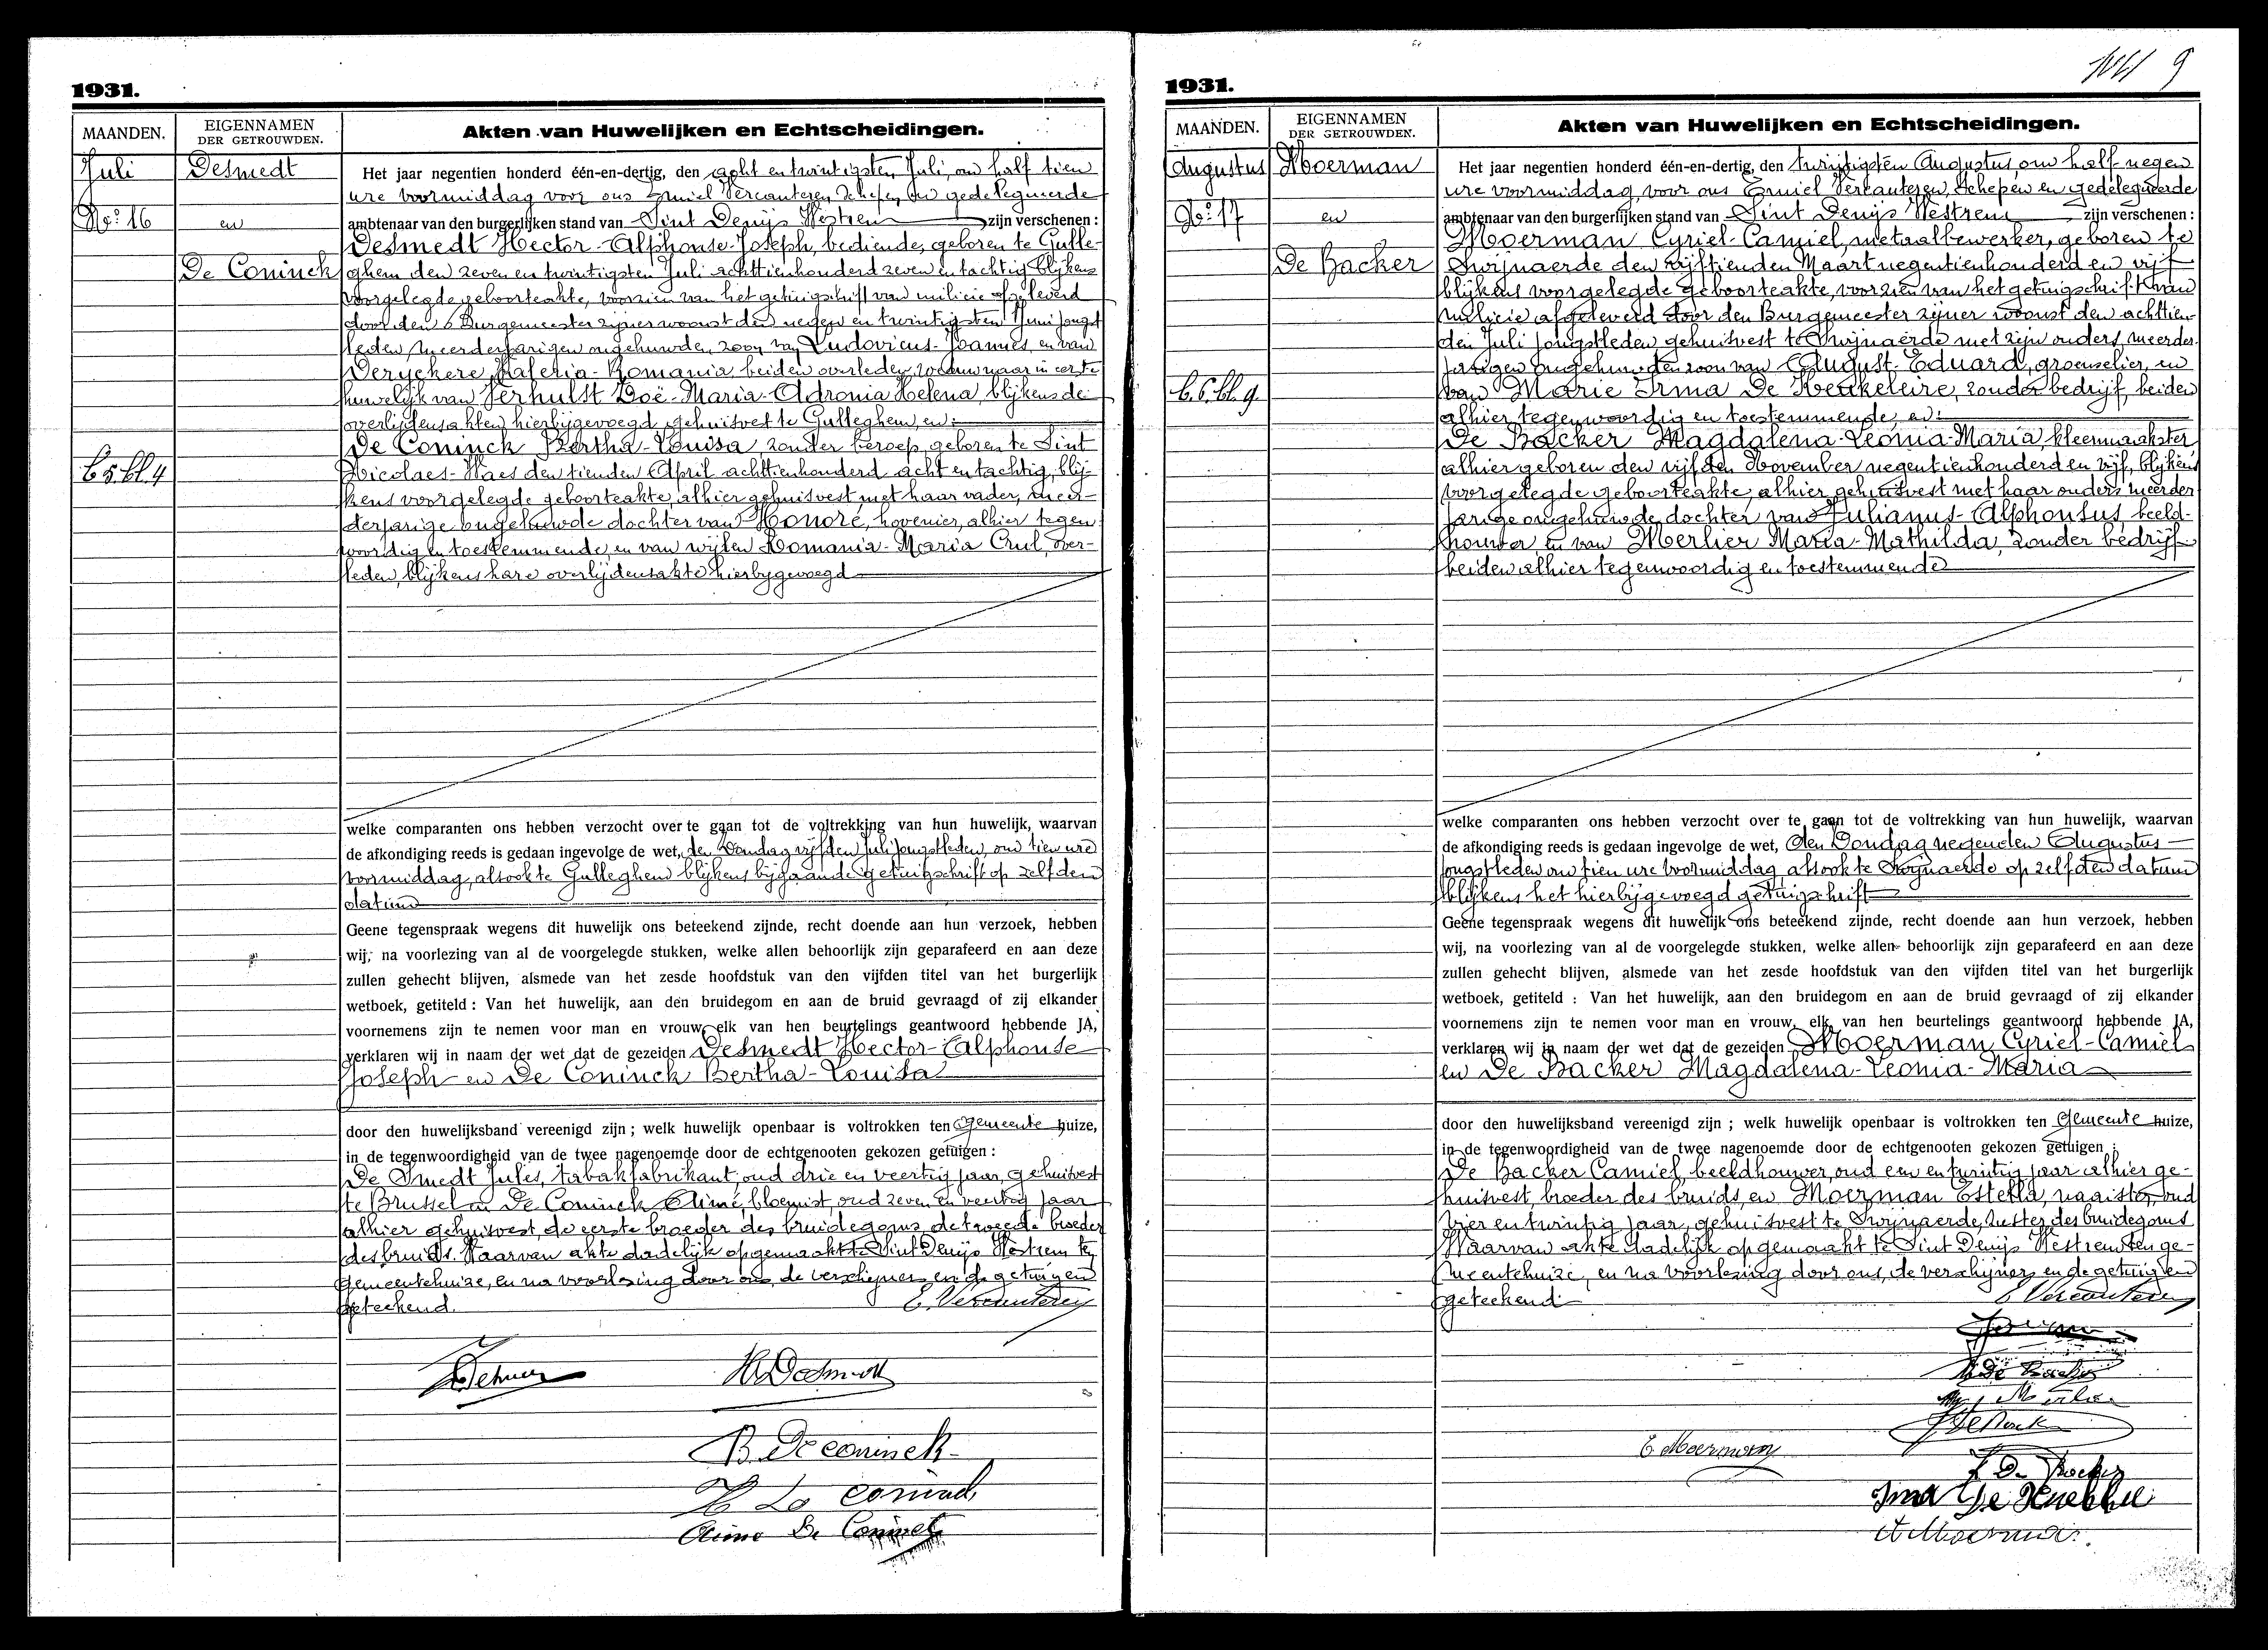 1931.
MAANDEN.
EIGENNAMEN
DER GETROUWDEN.
Akten van Huwelijken en Echtscheidingen.
Juli
No: 16
B 5. bl. 4
Desmedt
en
De Coninck
Het jaar negentien honderd één-en-dertig, den acht en twintigsten Juli, om half tien
ure voormiddag voor ons Emiel Vercauteren, Schepen en gedelegueerde
ambtenaar van den burgerlijken stand van Sint Denijs Westrem zijn verschenen :
Desmedt Hector-Alphonse-Joseph, bediende, geboren te Gulle-
ghem den zeven en twintigsten Juli achttienhonderd zeven en tachtig blijkens
voorgelegde geboorteakte, voorzien van het getuigschrift van milicie afgeleverd
door den Burgemeester zijner woonst den negen en twintigsten Juni jongst
leden, meerderjarigen ongehuwden zoon van Ludovicus-Joannes, en van
Veryckere Valeria-Romania beiden overleden, weduwnaar in eerste
huwelijk van Verhulst Zoë-Maria-Adronia Helena, blijkens de
overlijdensakten hierbijgevoegd gehuisvest te Gulleghem, en:
De Coninck Bertha-Louisa, zonder beroep, geboren te Sint
Nicolaes-Waes den tienden April achttienhonderd acht en tachtig, blij-
kens voorgelegde geboorteakte, alhier gehuisvest met haar vader, meer-
derjarige ongehuwde dochter van Honoré, hovenier, alhier tegen
woordig en toestemmende, en van wijlen Romania-Maria Crul, over-
leden, blijkens hare overlijdensakte hierbygevoegd
welke comparanten ons hebben verzocht over te gaan tot de voltrekking van hun huwelijk, waarvan
de afkondiging reeds is gedaan ingevolge de wet, den Zondag vijfden Juli jongstleden, om tien ure
voormiddag, alsook te Gulleghem blijkens bijgaande getuigschrift op zelfden
datum
Geene tegenspraak wegens dit huwelijk ons beteekend zijnde, recht doende aan hun verzoek, hebben
wij, na voorlezing van al de voorgelegde stukken, welke allen behoorlijk zijn geparafeerd en aan deze
zullen gehecht blijven, alsmede van het zesde hoofdstuk van den vijfden titel van het burgerlijk
wetboek, getiteld : Van het huwelijk, aan den bruidegom en aan de bruid gevraagd of zij elkander
voornemens zijn te nemen voor man en vrouw, elk van hen beurtelings geantwoord hebbende JA,
verklaren wij in naam der wet dat de gezeiden Desmedt Hector-Alphonse
Joseph en De Coninck Bertha-Louisa
door den huwelijksband vereenigd zijn ; welk huwelijk openbaar is voltrokken ten Gemeente huize,
in de tegenwoordigheid van de twee nagenoemde door de echtgenooten gekozen getuigen :
De Smedt Jules, tabakfabrikant, oud drie en veertig jaar, gehuisvest
te Brussel en De Coninck Aimé, bloemist, oud zeven en veertig jaar
alhier gehuisvest, de eerste broeder des bruidegoms, de tweede broeder
des bruids. Waarvan akte dadelijk opgemaakt te Sint Denijs Westrem ten
gemeentehuize, en na voorlezing door ons, de verschijners en de getuigen
geteekend.
E. Vercauteren
H Desmedt
B. De coninck
Aimé De Coninck
1931.
9
MAANDEN.
EIGENNAMEN
DER GETROUWDEN.
Akten van Huwelijken en Echtscheidingen.
Augustus
No: 17
B. 6. bl. 9.
Moerman
en
De Backer
Het jaar negentien honderd één-en-dertig, den twintigsten Augustus, om half negen
ure voormiddag, voor ons Emiel Vercauteren, Schepen en gedelegueerde
ambtenaar van den burgerlijken stand van Sint Denijs Westrem zijn verschenen :
Moerman Cyriel-Camiel, metaalbewerker, geboren te
Swijnaerde den vijftienden Maart negentienhonderd en vijf
blijkens voorgelegde geboorteakte, voorzien van het getuigschrift van
milicie afgeleverd door den Burgemeester zijner woonst den achttien-
den Juli jongstleden, gehuisvest te Swijnaerde met zijn ouders, meerder-
jarigen ongehuwden zoon van August-Eduard, groenselier, en
van Marie Irma De Keukeleire, zonder bedrijf, beiden
alhier tegenwoordig en toestemmende, en:
De Backer Magdalena-Leonia-Maria kleermaakster
alhier geboren den vijfden November negentienhonderd en vijf, blijkens
voorgelegde geboorteakte, alhier gehuisvest met haar ouders meerder
jarige ongehuwde dochter van Julianus-Alphonsus, beeld-
houwer en van Merlier Maria-Mathilda, zonder bedrijf
beiden alhier tegenwoordig en toestemmende
welke comparanten ons hebben verzocht over te gaan tot de voltrekking van hun huwelijk, waarvan
de afkondiging reeds is gedaan ingevolge de wet, den Zondag negenden Augustus
jongstleden om tien ure voormiddag, alsook te Swijnaerde op zelfden datum
blijkens het hierbijgevoegd getuigschrift
Geene tegenspraak wegens dit huwelijk ons beteekend zijnde, recht doende aan hun verzoek, hebben
wij, na voorlezing van al de voorgelegde stukken, welke allen behoorlijk zijn geparafeerd en aan deze
zullen gehecht blijven, alsmede van het zesde hoofdstuk van den vijfden titel van het burgerlijk
wetboek, getiteld : Van het huwelijk, aan den bruidegom en aan de bruid gevraagd of zij elkander
voornemens zijn te nemen voor man en vrouw, elk van hen beurtelings geantwoord hebbende JA,
verklaren wij in naam der wet dat de gezeiden Moerman Cyriel-Camiel
en De Backer Magdalena-Leonia-Maria
door den huwelijksband vereenigd zijn ; welk huwelijk openbaar is voltrokken ten Gemeente huize,
in de tegenwoordigheid van de twee nagenoemde door de echtgenooten gekozen getuigen :
De Backer Camiel, beeldhouwer, oud een en twintig jaar alhier ge-
huisvest, broeder des bruids, en Moerman Estella, naaister, oud
vier en twintig jaar, gehuisvest te Swijnaerde, zuster des bruidegoms
Waarvan akte dadelijk opgemaakt te Sint Denijs Westrem ten ge-
meentehuize, en na voorlezing door ons, de verschijners en de getuigen
geteekend.
E Vercauteren
M De Backer
E Moerman
De Backer
Irma De
A Moerman